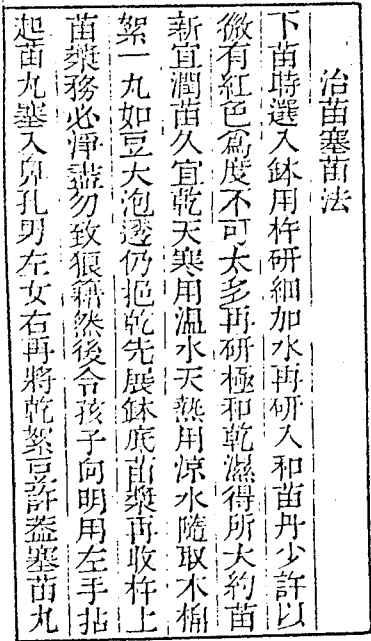 治苗塞苗法
下苗時選入鉢用杵研細加水再研入和苗丹少許以
微有紅色爲度不可太多再研極和乾濕得所大約苗
新宜潤苗久宜乾天寒用溫水天熱用涼水隨取木棉
絮一丸如豆大泡透仍挹乾先展鉢底苗漿再收杵上
苗漿務必淨盡勿致狼籍然後令孩子向明用左手拈
起苗丸塞入鼻孔男左女右再將乾絮豆許葢塞苗丸